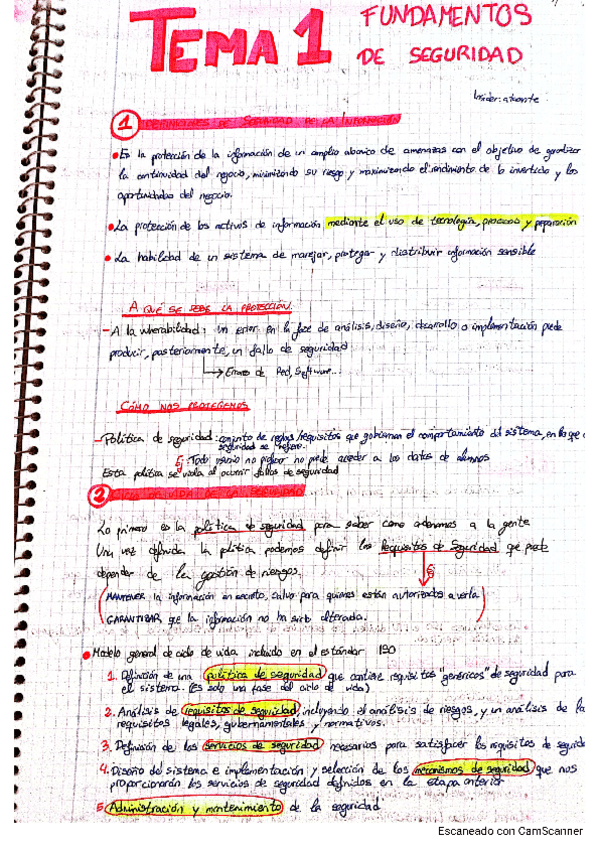 TEMA 1 FUNDAMENTOS
DE SEGURIDAD
Insider: atacante
1 DEFINICIONES DE SEGURIDAD DE LA INFORMACIÓN
• Es la protección de la información de un amplio abanico de amenazas con el objetivo de garantizar
la continuidad del negocio, minimitando su riesgo y maximizando el rendimiento de lo invertido y las
oportunidades del negocio.
• La protección de los activos de información mediante el uso de tecnología, procesos y preparación
• La habilidad de un sistema de manejar, proteger y distribuir información sensible
A QUÉ SE DEBE LA PROTECCIÓN.
- A la vulnerabilidad: Un error en la fase de análisis, diseño, desarrollo o implementación puede
producir, posteriormente, un fallo de seguridad
→ Errores de Red, Software...
CÓMO NOS PROTEGEMOS
- Política de seguridad: conjunto de reglas/requisitos que gobiernan el comportamiento del sistema, en lo que a
seguridad se refiere.
Ej: Todo usuario no profesor no puede acceder a los datos de alumnos
Esta política se viola al ocurrir fallos de seguridad
2 DE VIDA DE LA SEGURIDAD
Lo primero es la política de seguridad para saber como ordenamos a la gente
Una vez definida la política podemos definir los Requisitos de Seguridad que puede
depender de la gestión de riesgos.
Ej
MANTENER la información en secreto, salvo para quienes están autorizados a verla
GARANTIZAR que la información no ha sido alterada.
• Modelo general de ciclo de vida incluido en el estándar ISO
1. Definición de una política de seguridad que contiene requisitos "genéricos" de seguridad para
el sistema. (Es solo una fase del ciclo de vida)
2. Análisis de requisitos de seguridad, incluyendo el análisis de riesgos, y un análisis de la
requisitos legales, gubernamentales y normativos.
3. Definición de los servicios de seguridad necesarios para satisfacer los requisitos de segurida
4. Diseño del sistema e implementación y selección de los mecanismos de seguridad que nos
proporcionarán los servicios de seguridad definidos en la etapa anterior
5. Administración y mantenimiento de la seguridad
Escaneado con CamScanner